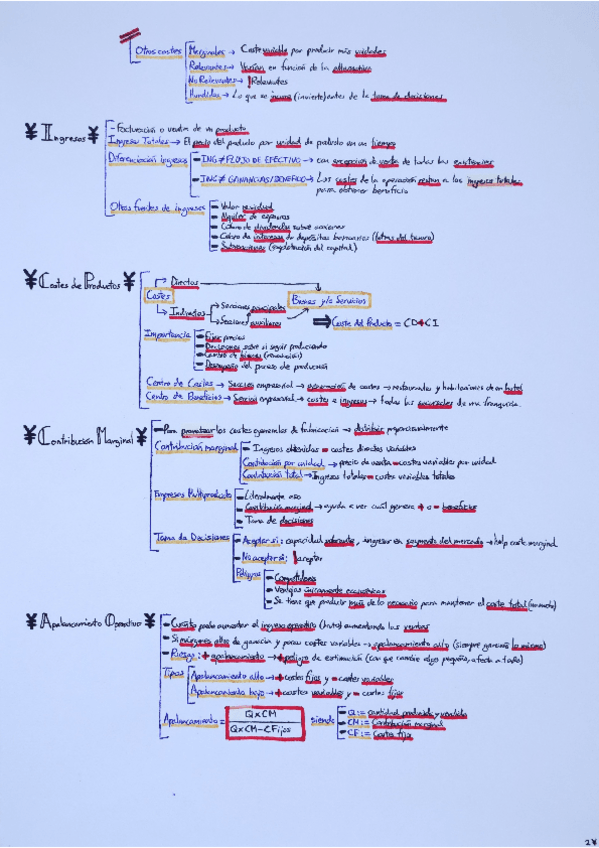 Otros costes
Marginales → Coste variable por producir más unidades
Relevantes → Varían en función de la alternativa
No Relevantes → !Relevantes
Hundidos → Lo que se incurre (invierte) antes de la toma de decisiones
¥ Ingresos ¥
- Facturación o venta de un producto
Ingresos Totales → El precio del producto por unidad de producto en un tiempo
Diferenciación ingresos
- ING ≠ FLUJO DE EFECTIVO → con excepción de venta de todas las existencias
- ING ≠ GANANCIAS/BENEFICIO → Los costes de la operación restan a los ingresos totales
para obtener beneficio
Otras fuentes de ingresos
- Valor residual
- Alquiler de espacios
- Cobro de dividendos sobre acciones
- Cobro de intereses de depósitos bancarios (letras del tesoro)
- Subvenciones (explotación del capital)
¥ Costes de Productos ¥
Costes
→ Directos
→ Indirectos
→ Secciones principales
→ Secciones auxiliares
Bienes y/o Servicios
⇒ Coste del Producto = CD+CI
Importancia
- Fijar precios
- Decisiones sobre si seguir produciendo
- Control de bienes
- Desempeño del proceso de producción
Centro de Costes → Sección empresarial → de costes → restaurantes y habitaciones de un hotel
Centro de Beneficios → Sección empresarial → costes e ingresos → todas las sucursales de una franquicia.
¥ Contribución Marginal ¥
- Para prorratear los costes generales de fabricación → distribuir proporcionalmente
Contribución marginal
- Ingresos obtenidos - costes directos variables
Contribución por unidad → precio de venta - costes variables por unidad
Contribución total → Ingresos totales - costes variables totales
Empresas Multiproducto
- Literalmente eso
- Contribución marginal → ayuda a ver cuál genera + o - beneficios
- Toma de decisiones
Toma de Decisiones
- Aceptar si: capacidad sobrante, ingresar en segmento del mercado → coste marginal
- No aceptar si: !aceptar
Peligros
- Competidores
- Ventajas únicamente económicas
- Se tiene que producir más de lo necesario para mantener el coste total
¥ Apalancamiento Operativo ¥
- Cuánto puedo aumentar el ingreso operativo (bruto) aumentando las ventas
- Si márgenes altos de ganancia y pocos costes variables → apalancamiento alto (siempre generará lo mismo)
- Riesgo: + apalancamiento → + peligro de estimación (con que cambie algo pequeño, afecta a todo)
Tipos
Apalancamiento alto → + costes fijos y - costes variables
Apalancamiento bajo → + costes variables y - costes fijos
Apalancamiento = QxCM
QxCM-CFijos
siendo
- Q := cantidad producida y vendida
- CM := Contribución marginal
- CF := Coste fijo
2¥